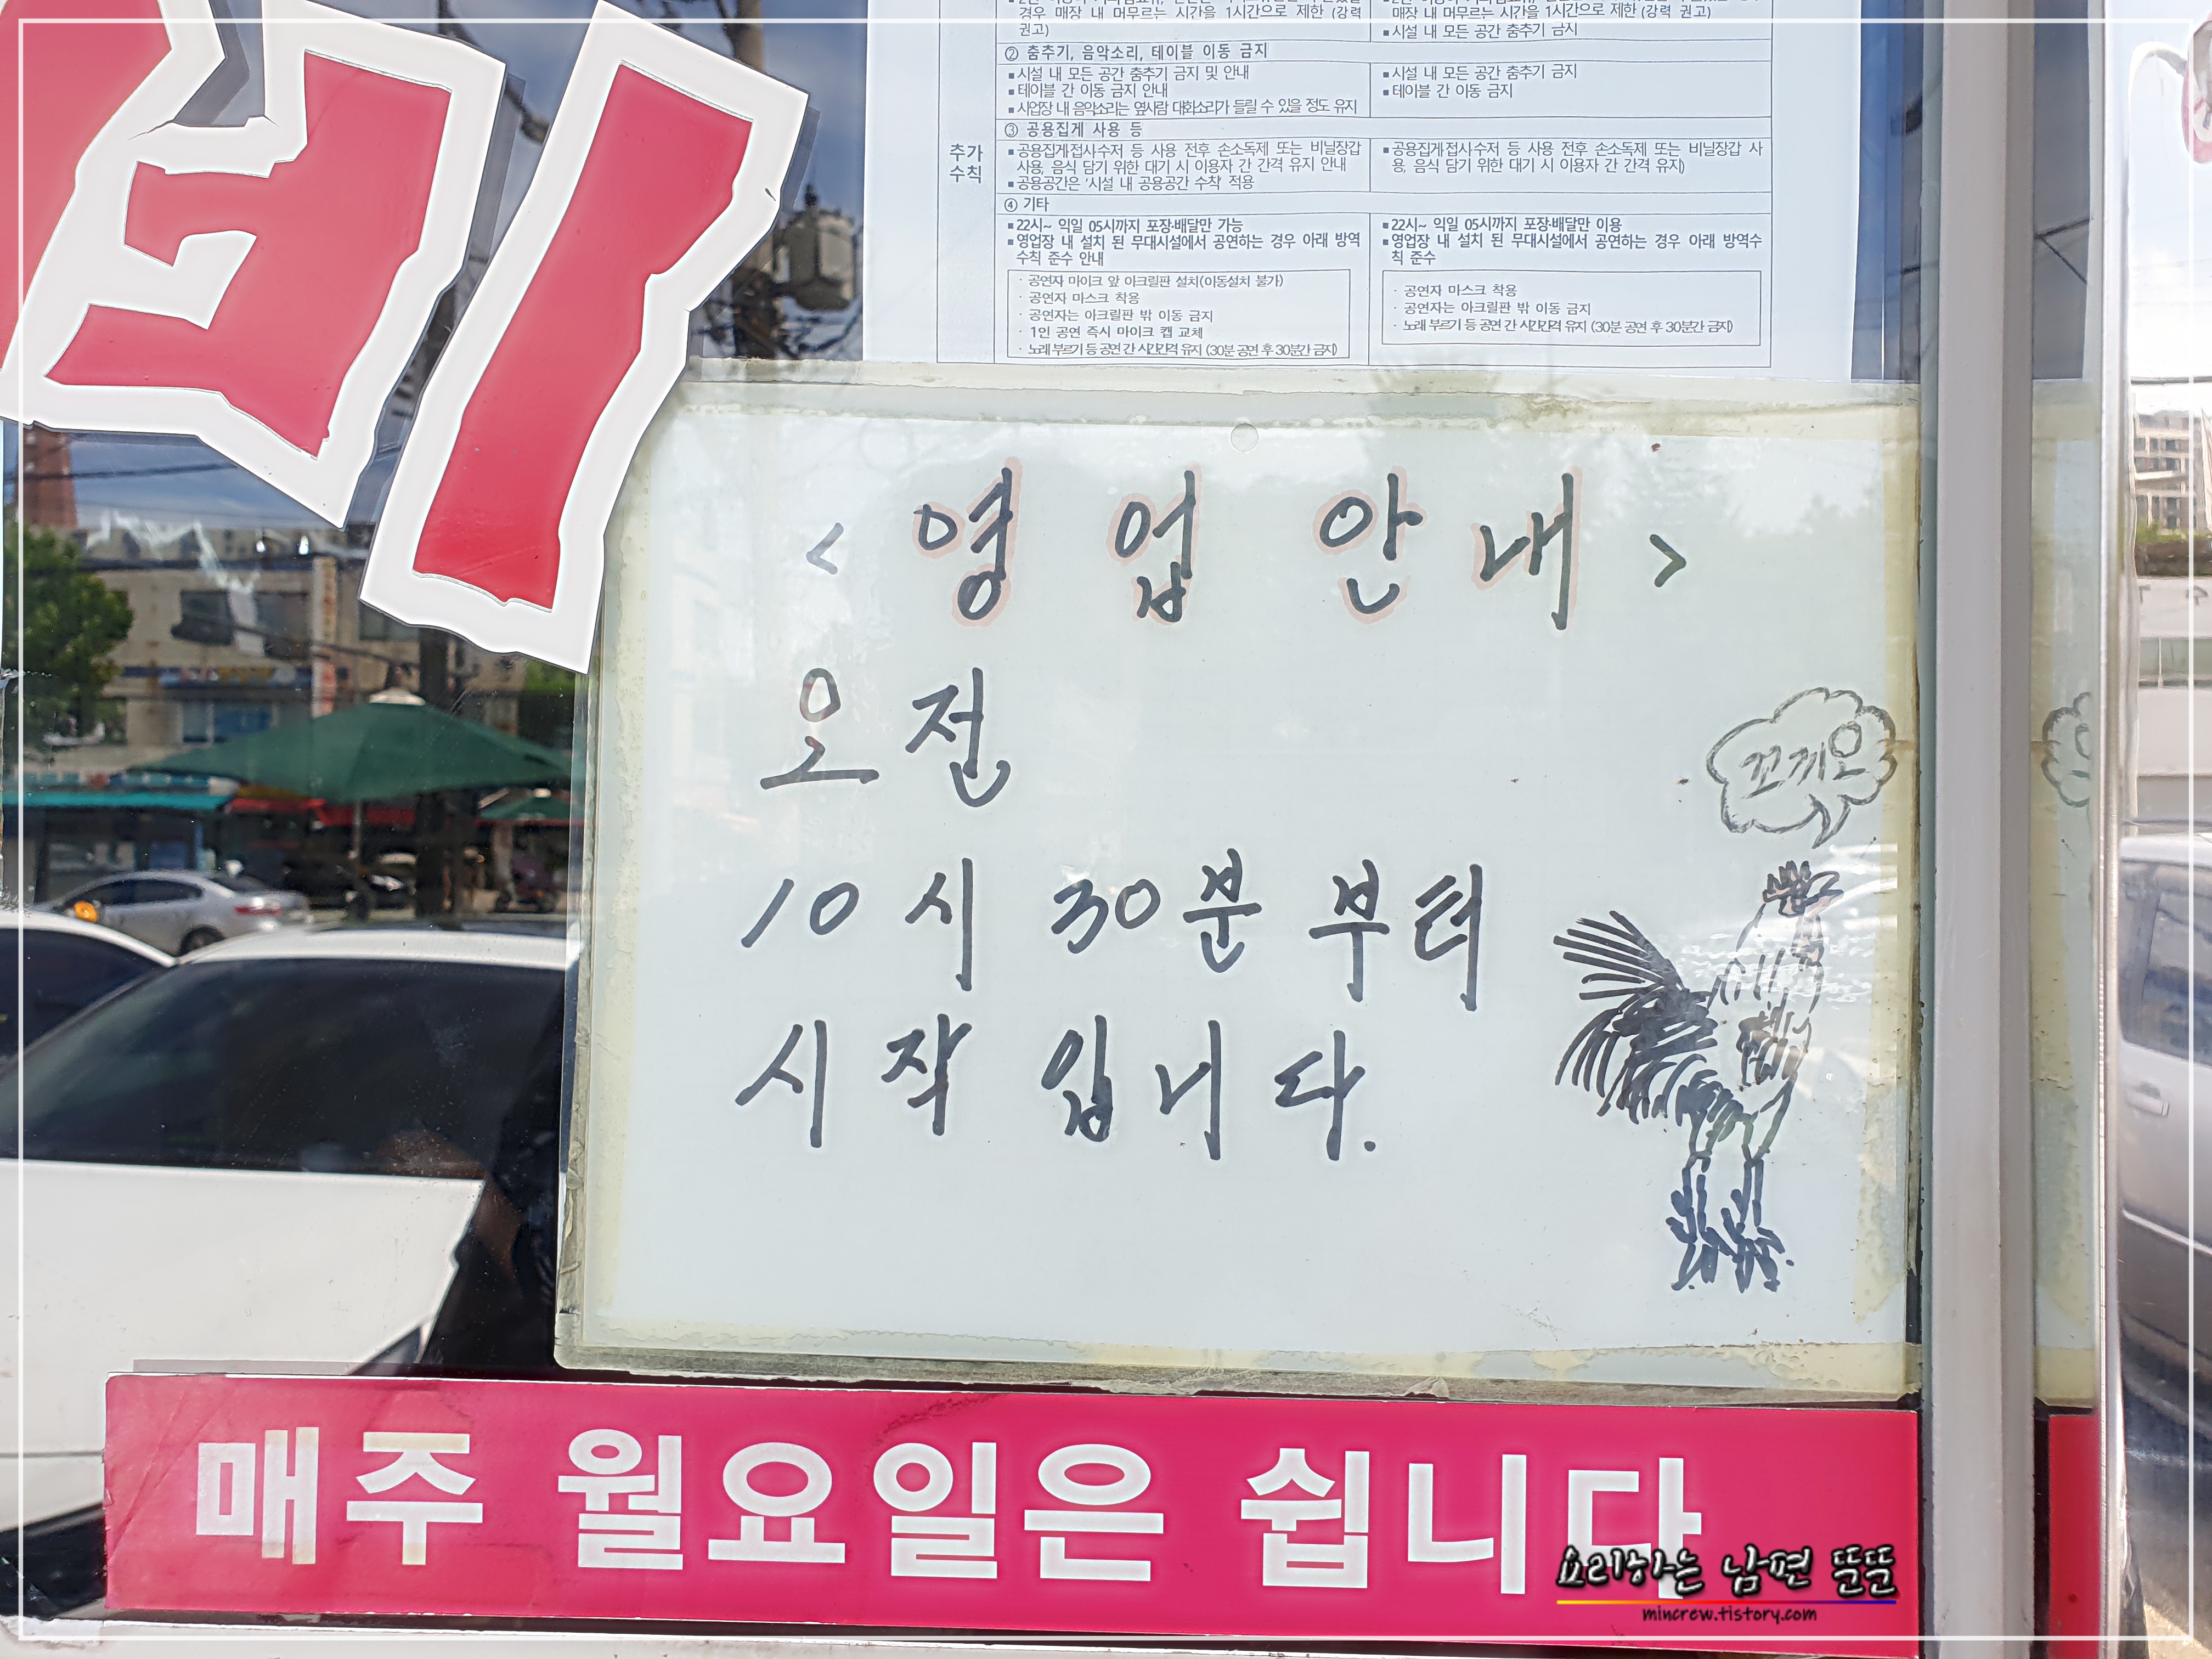 경우 매장 내 머무르는 시간을 1시간으로 제한 (강력
권고)
매장 내 머무르는 시간을 1시간으로 제한 (강력 권고)
■ 시설 내 모든 공간 춤추기 금지
② 춤추기, 음악소리, 테이블 이동 금지
■ 시설 내 모든 공간 춤추기 금지 및 안내
■ 테이블 간 이동 금지 안내
■ 사업장 내 음악소리는 옆사람 대화소리가 들릴 수 있을 정도 유지
■ 시설 내 모든 공간 춤추기 금지
■ 테이블 간 이동 금지
추가
수칙
③ 공용집게 사용 등
■ 공용집게·접시·수저 등 사용 전후 손소독제 또는 비닐장갑
사용, 음식 담기 위한 대기 시 이용자 간 간격 유지 안내
■ 공용공간은 '시설 내 공용공간 수칙' 적용
■ 공용집게·접시·수저 등 사용 전후 손소독제 또는 비닐장갑 사
용, 음식 담기 위한 대기 시 이용자 간 간격 유지)
④ 기타
■ 22시~ 익일 05시까지 포장·배달만 가능
■ 영업장 내 설치 된 무대시설에서 공연하는 경우 아래 방역
수칙 준수 안내
· 공연자 마이크 앞 아크릴판 설치(이동설치 불가)
· 공연자 마스크 착용
· 공연자는 아크릴판 밖 이동 금지
· 1인 공연 즉시 마이크 캡 교체
· 노래 부르기 등 공연 간 시간간격 유지 (30분 공연 후 30분간 금지)
■ 22시~ 익일 05시까지 포장·배달만 이용
■ 영업장 내 설치 된 무대시설에서 공연하는 경우 아래 방역수
칙 준수
· 공연자 마스크 착용
· 공연자는 아크릴판 밖 이동 금지
· 노래 부르기 등 공연 간 시간간격 유지 (30분 공연 후 30분간 금지)
< 영업안내 >
오전
10시 30분부터
시작 입니다.
꼬끼오
매주 월요일은 쉽니다
요리하는 남편 뚠뚠
mincrew.tistory.com